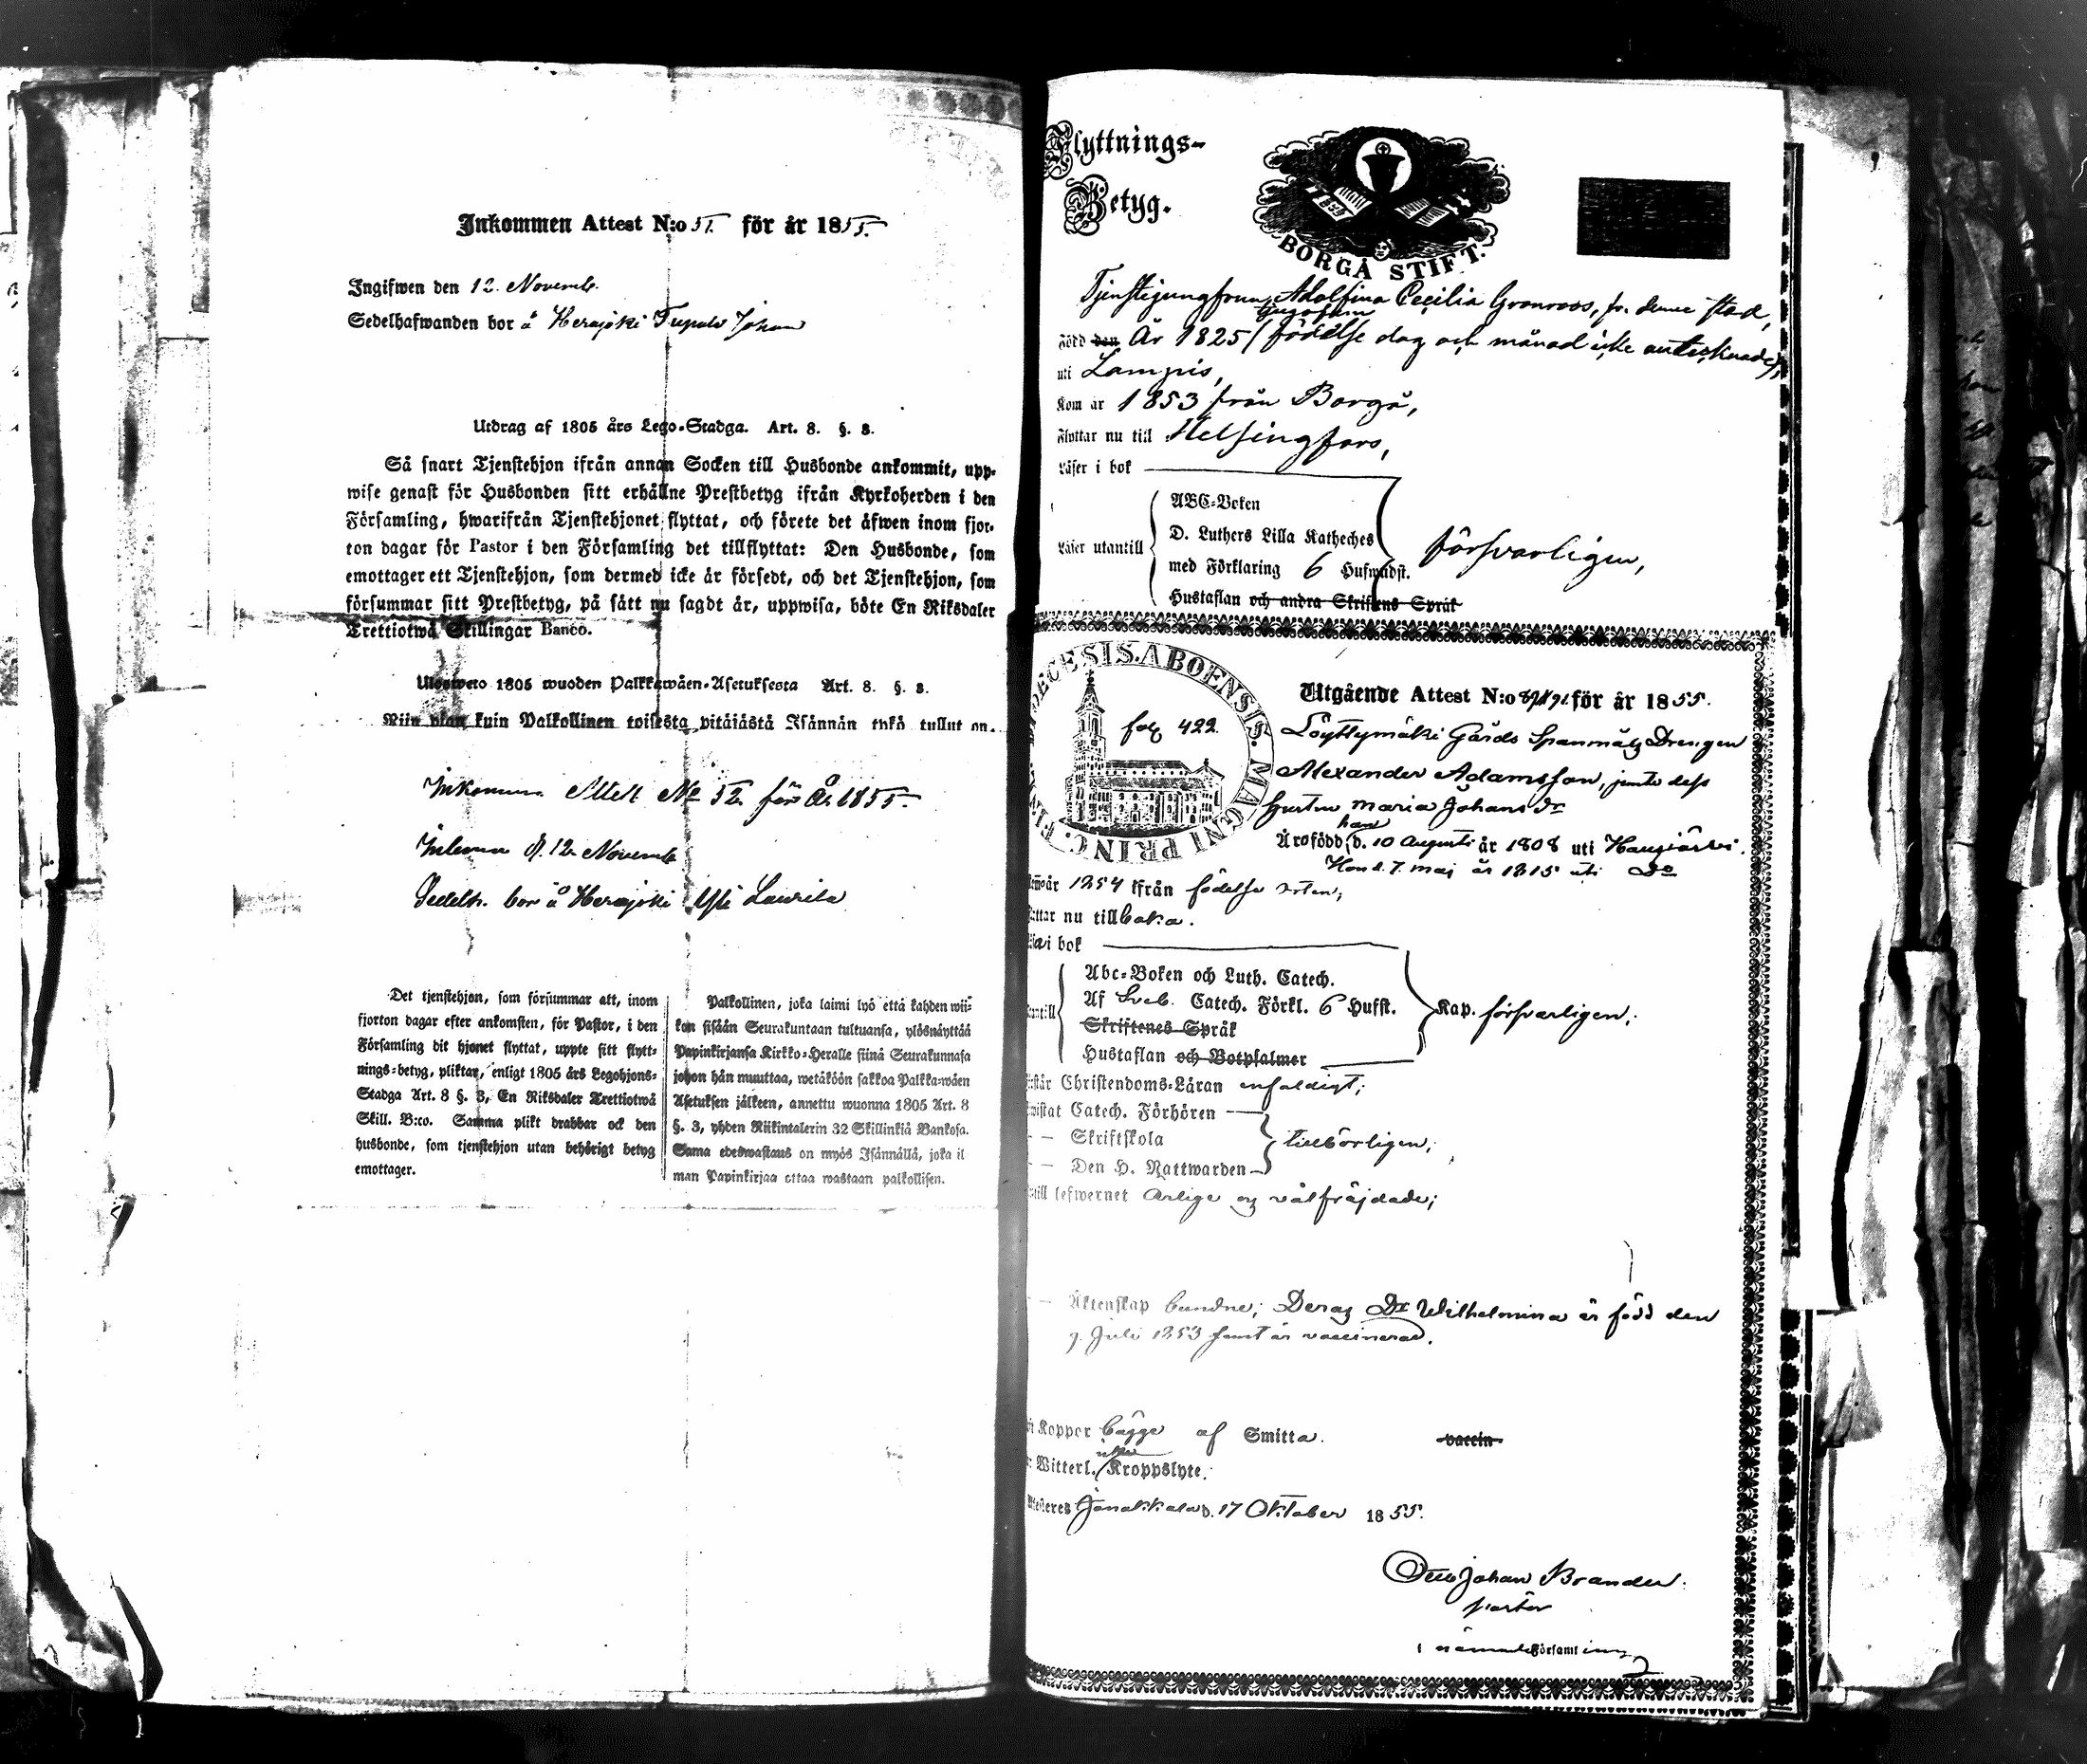 Inkommen Attest N:o 51. för år 1855.
Ingifwen den 12. Novemb.
Sedelhafwanden bor å Herajoki Tupala Johan
Utdrag af 1805 års Lego-Stadga. Art. 8. §. 3.
Så snart Tjenstehjon ifrån annan Socken till Husbonde ankommit, upp-
wise genast för Husbonden sitt erhållne Prestbetyg ifrån Kyrkoherden i den
Församling, hwarifrån Tjenstehjonet flyttat, och förete det äfwen inom fjor-
ton dagar för Pastor i den Församling det tillflyttat: Den Husbonde, som
emottager ett Tjenstehjon, som dermed icke är försedt, och det Tjenstehjon, som
försummar sitt Prestbetyg, på sätt nu sagdt är, uppwisa, böte En Riksdaler
Trettiotwå Skillingar Banco.
Ulosweto 1805 wuoden Palkkawäen-Asetuksesta Art. 8. §. 3.
Niin pian kuin Palkollinen toisesta pitäjästä Isännän tykö tullut on,
Inkommen Attest No 52 för År 1855.
Inlemn d. 12 Novemb
Sedelh. bor å Herajoki Yli Laurila
Det tjenstehjon, som försummar att, inom
fjorton dagar efter ankomsten, för Pastor, i den
Församling dit hjonet flyttat, uppte sitt flytt-
nings-betyg, pliktar, enligt 1805 års Legohjons-
Stadga Art. 8 §. 3, En Riksdaler Trettiotwå
Skill. B:co. Samma plikt drabbar ock den
husbonde, som tjenstehjon utan behörigt betyg
emottager.
Palkollinen, joka laimi lyö että kahden wii-
kon sisään Seurakuntaan tultuansa, ylösnäyttää
Papinkirjansa Kirkko-Heralle siinä Seurakunnasa
johon hän muuttaa, wetäköön sakkoa Palkka-wäen
Asetuksen jälkeen, annettu wuonna 1805 Art. 8
§. 3, yhden Riikintalerin 32 Skillinkiä Bankosa.
Sama edeswastaus on myös Isännällä, joka il
man Papinkirjaa ottaa wastaan palkollisen.
Flyttnings-
Betyg.
BORGÅ STIFT.
Tjenstejungfrun Adolfina Cecilia Grönroos, fr. denne stad,
Född den År 1825 / födelse dag och månad icke antecknade /,
uti Lampis,
Kom år 1853 från Borgå,
Flyttar nu till Helsingfors,
Läser i bok
Läser utantill
ABC-Boken
D. Luthers Lilla Katheches
med Förklaring 6 Hufwudst.
Hustaflan och andra Skriftens Språk
försvarligen,
DIOECESIS ABOENSIS. MAGNI PRINC. FINL
fol 422.
Utgående Attest N:o för år 1855.
Löyttymäki Gårds Spanmåls Drengen
Alexander Adamsson, jemte dess
hustru Maria Johansdr
Ärofödd han d. 10 Augusti år 1808 uti Hausjärvi.
Hon d. 7. maj år 1815 uti Do
år 1854 ifrån födelse orten;
nu tillbaka.
i bok
Abc-Boken och Luth. Catech.
Af Sveb. Catech. Förkl. 6 Hufst.
Skriftenes Språk
Hustaflan och Botpsalmer
Kap. försvarligen;
Christendoms-Läran enfaldigt;
Catech. Förhören
— Skriftskola
— Den H. Nattwarden
tillbörligen;
till lefwernet ärlige og välfräjdade;
— Äktenskap bundne; Deras Dr Wilhelmina är född den
9. Juli 1853 samt är vaccinerad.
Koppor bägge af Smitta. vaccin
Witterl. icke Kroppslyte.
Janakkala d. 17 Oktober 1855.
Otto Johan Brander.
pastor
i nämnde Församling